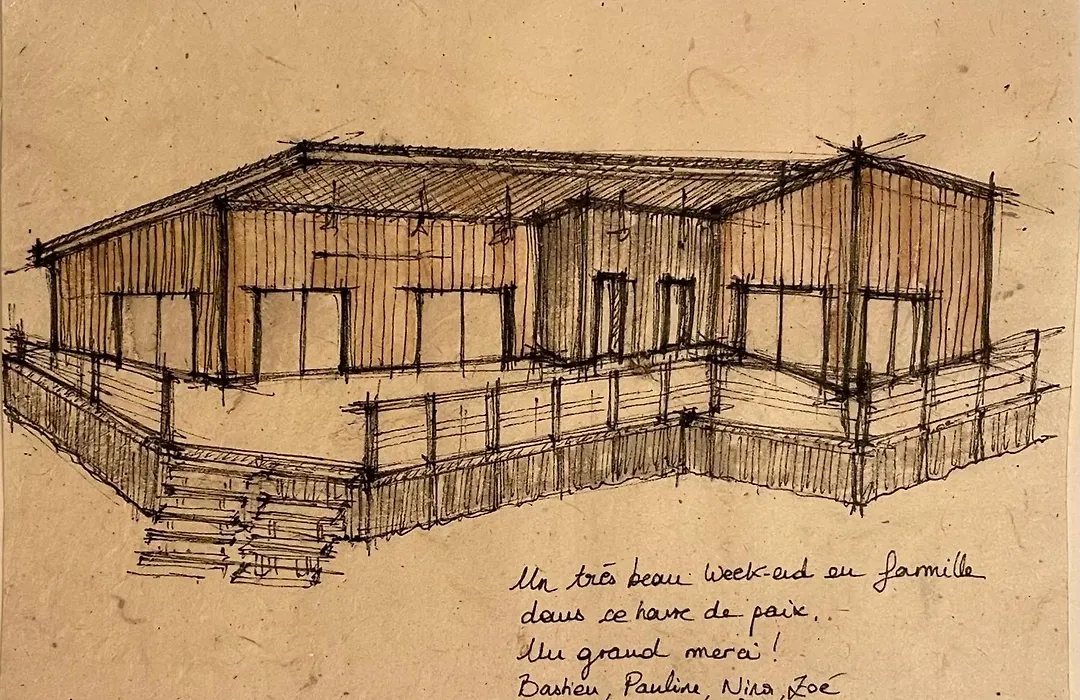 Un très beau Week-end en famille
dans ce havre de paix.
Un grand merci !
Bastien, Pauline, Nina, Zoé